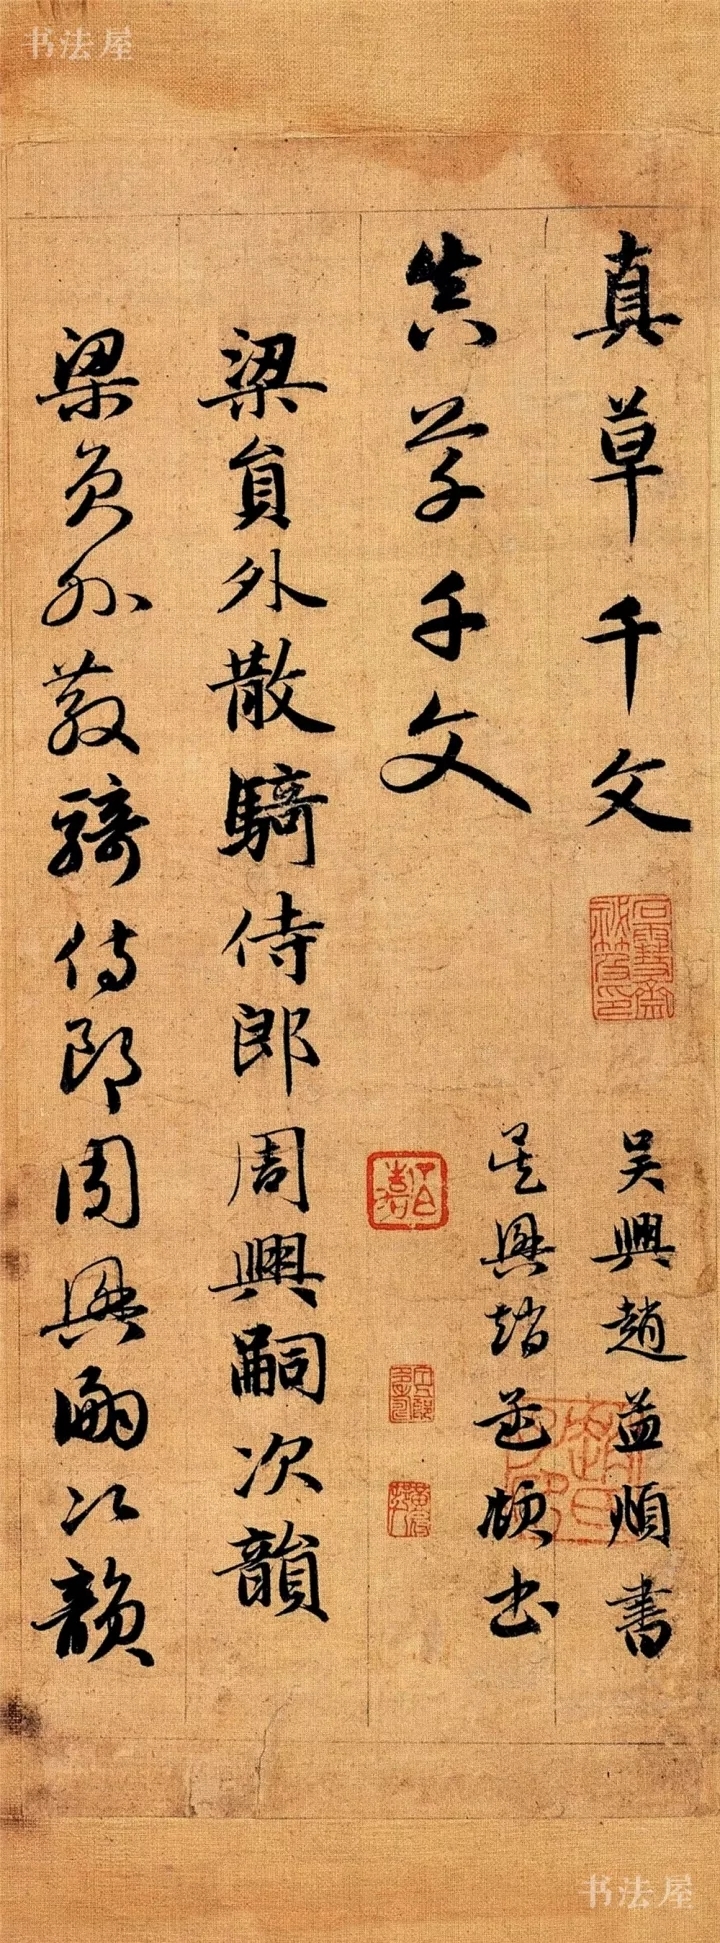 书法屋
真草千文
吴興趙孟頫書
真草千文
吴興趙孟頫書
梁員外散騎侍郎周興嗣次韻
梁員外散騎侍郎周興嗣次韻
书法屋